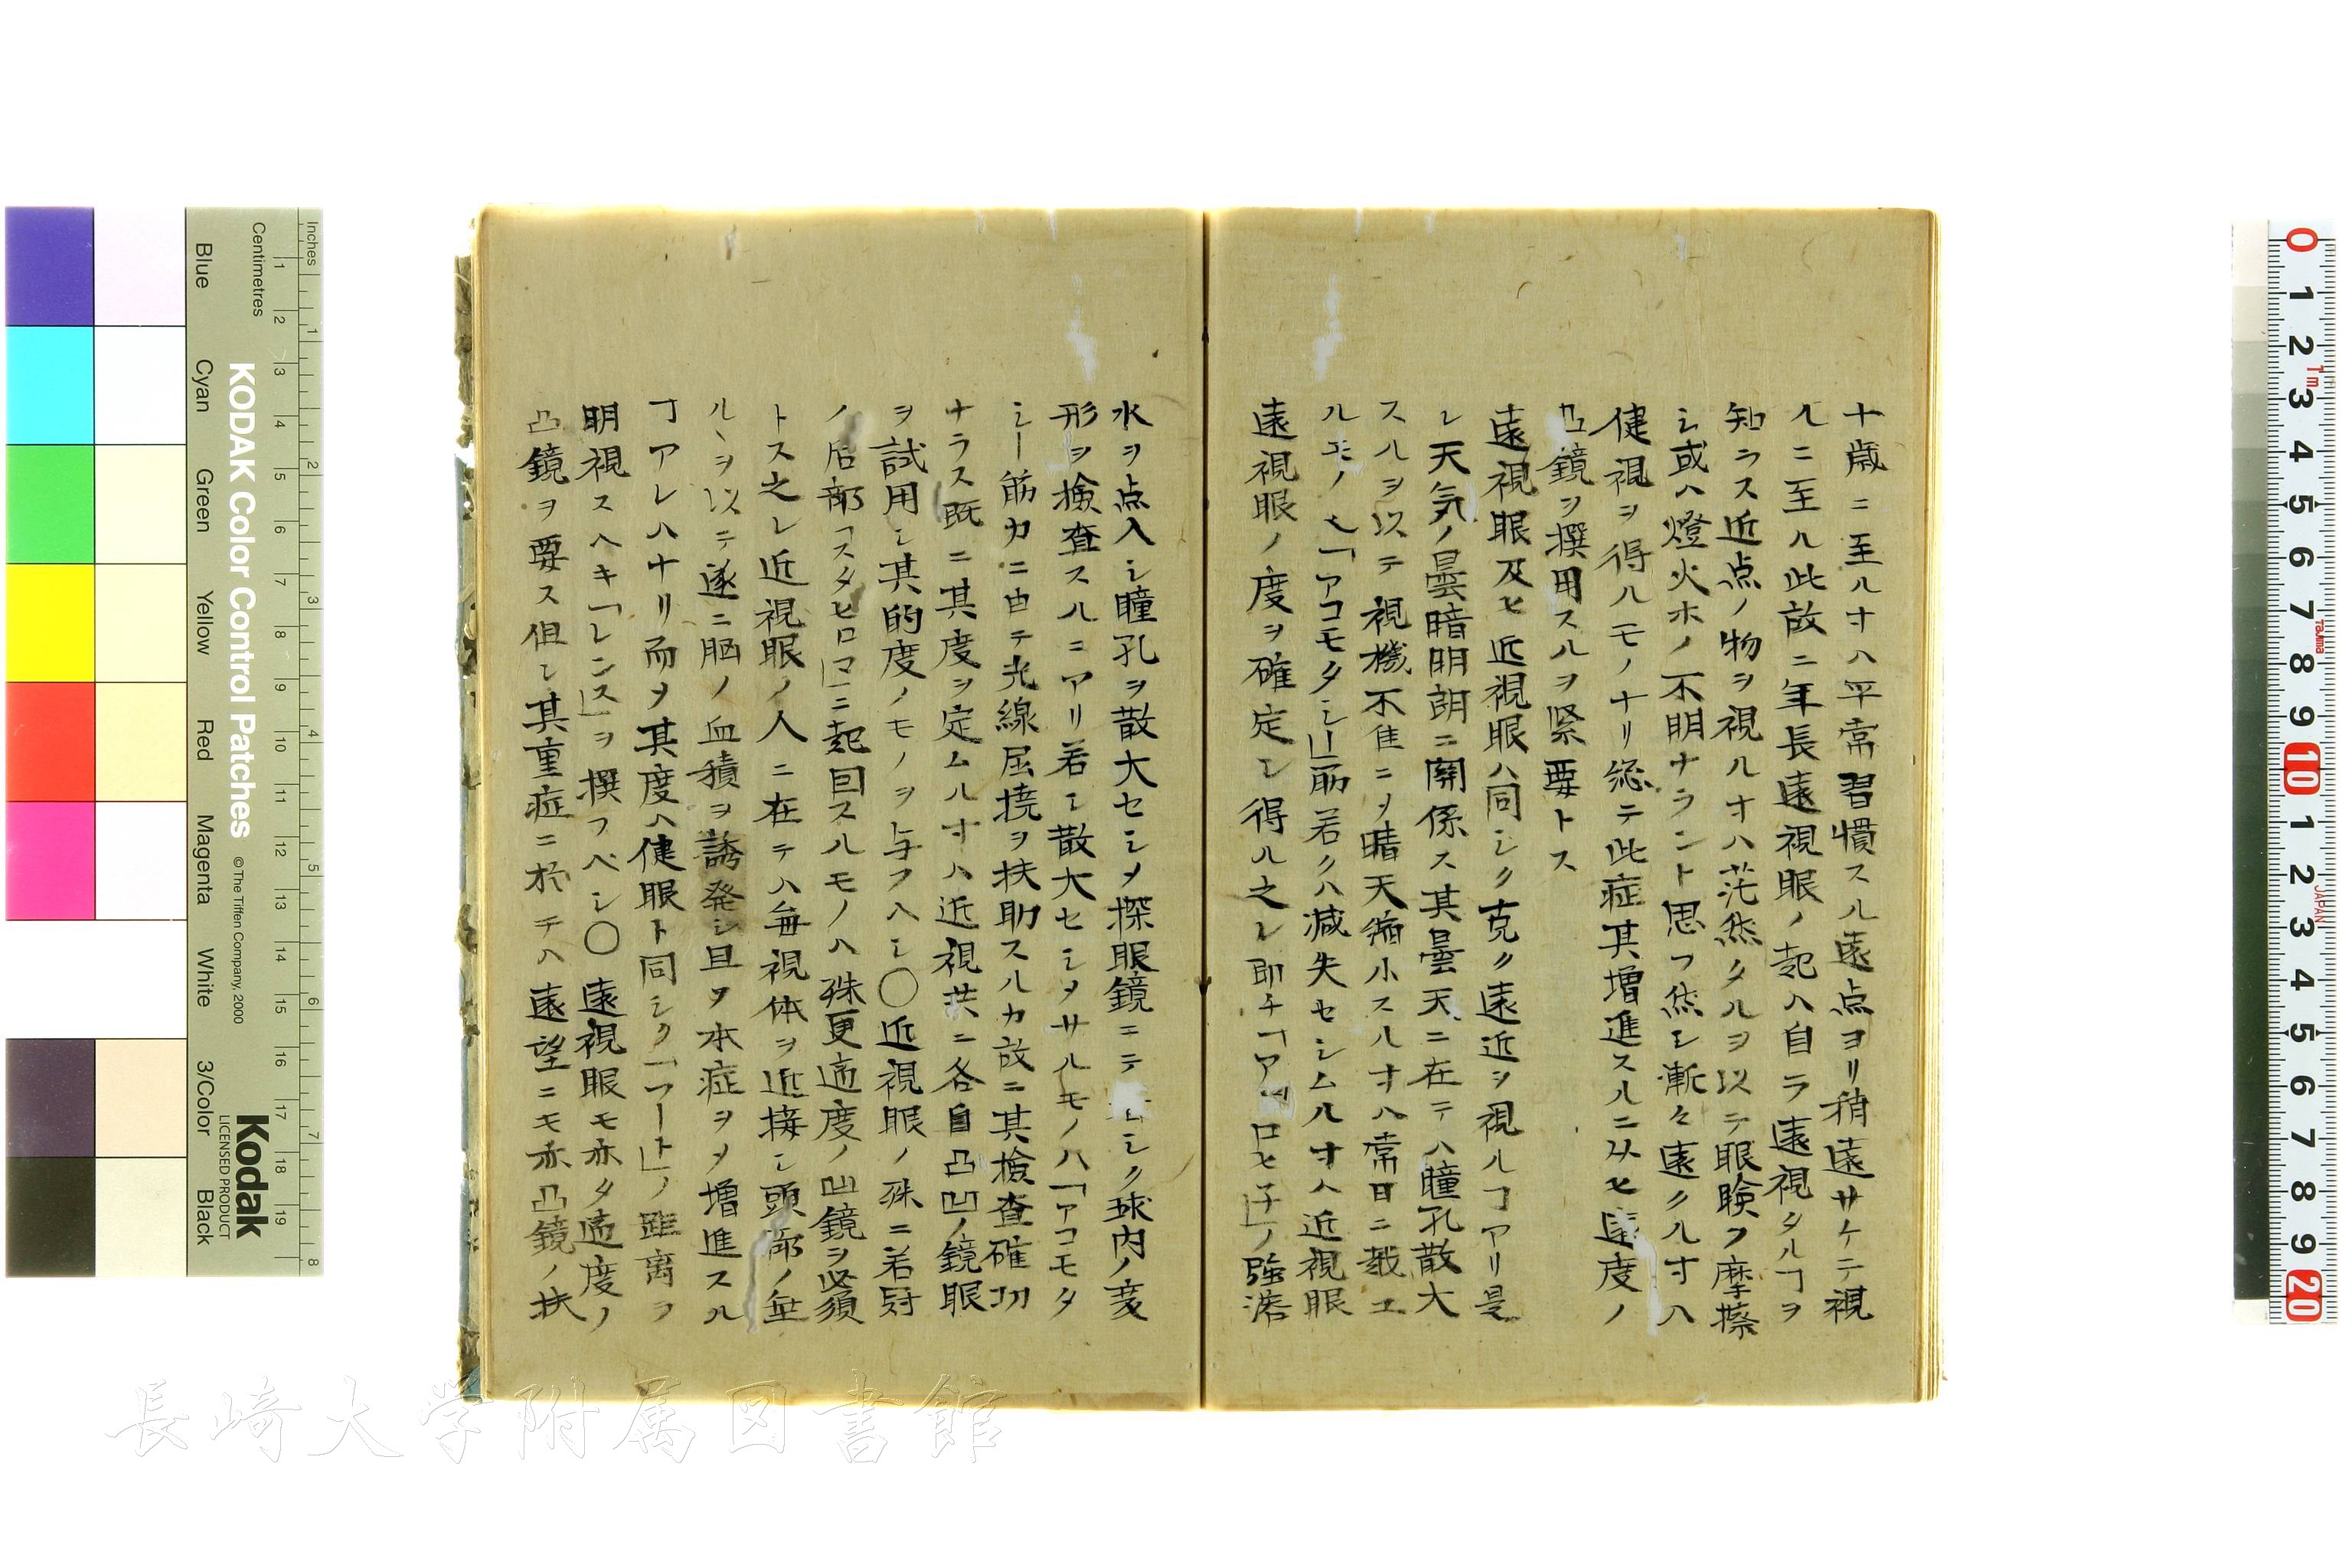 十歳ニ至ルオハ平常習慣スル遠点ヨリ稍遠サケテ視
ルニ至ル此故ニ年長遠視眼ノ起ハ自ラ遠視タルヿヲ
知ラス近点ノ物ヲ視ルオハ茫然タルヲ以テ眼瞼ヲ摩擦
シ或ハ燈火ホノ不明ナラント思フ然シ漸々遠クルオハ
健視ヲ得ルモノナリ総テ此症其増進スルニ从ヒ適度ノ
凸鏡ヲ撰用スルヲ緊要トス
遠視眼及ヒ近視眼ハ同シク克ク遠近ヲ視ルヿアリ是
レ天気ノ曇暗明朗ニ関係ス其曇天ニ在テハ瞳孔散大
スルヲ以テ視機不佳ニメ晴天縮小スルオハ常日ニ哉エ
ルモノ也「アコモタシー」筋若クハ減失セシムルオハ近視眼
遠視眼ノ度ヲ確定シ得ル之レ即チ「ア ロヒネ」ノ強溶
水ヲ点入シ瞳孔ヲ散大セシメ探眼鏡ニテ シク球内ノ変
形ヲ検査スルニアリ若シ散大セシメサルモノハ「アコモタ
シー筋力ニ由テ光線屈撓ヲ扶助スルカ故ニ其検査確切
ナラス既ニ其度ヲ定ムルオハ近視共ニ各自凸凹ノ鏡眼
ヲ試用シ其的度ノモノヲ与フヘシ〇近視眼ノ殊ニ若冠
ノ后部「スタヒロマ」ニ起因スルモノハ殊更適度ノ凹鏡ヲ必須
トス之レ近視眼ノ人ニ在テハ毎視体ヲ近接シ頭部ノ垂
ルヽヲ以テ遂ニ脳ノ血積ヲ誘発シ且ツ本症ヲメ増進スル
ヿアレハナリ而メ其度ハ健眼ト同シク「フート」ノ距离ヲ
明視スヘキ「レンス」ヲ撰フベシ〇遠視眼モ亦タ適度ノ
凸鏡ヲ要ス但シ其重症ニ於テハ遠望ニモ亦凸鏡ノ扶
KODAK Color Control Patches
© The Tiffen Company, 2000
Kodak
LICENSED PRODUCT
Inches
Centimetres
Blue
Cyan
Green
Yellow
Red
Magenta
White
3/Color
Black
長崎大学附属図書館